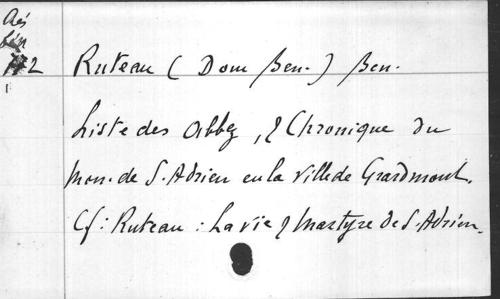 Rés
bén
772
Ruteau ( Dom Ben. ) Ben.
Liste des Abbez, & Chronique du
Mon. de S. Adrien en la ville de Grardmont.
Cf: Ruteau : La vie & Martyre de S. Adrien.